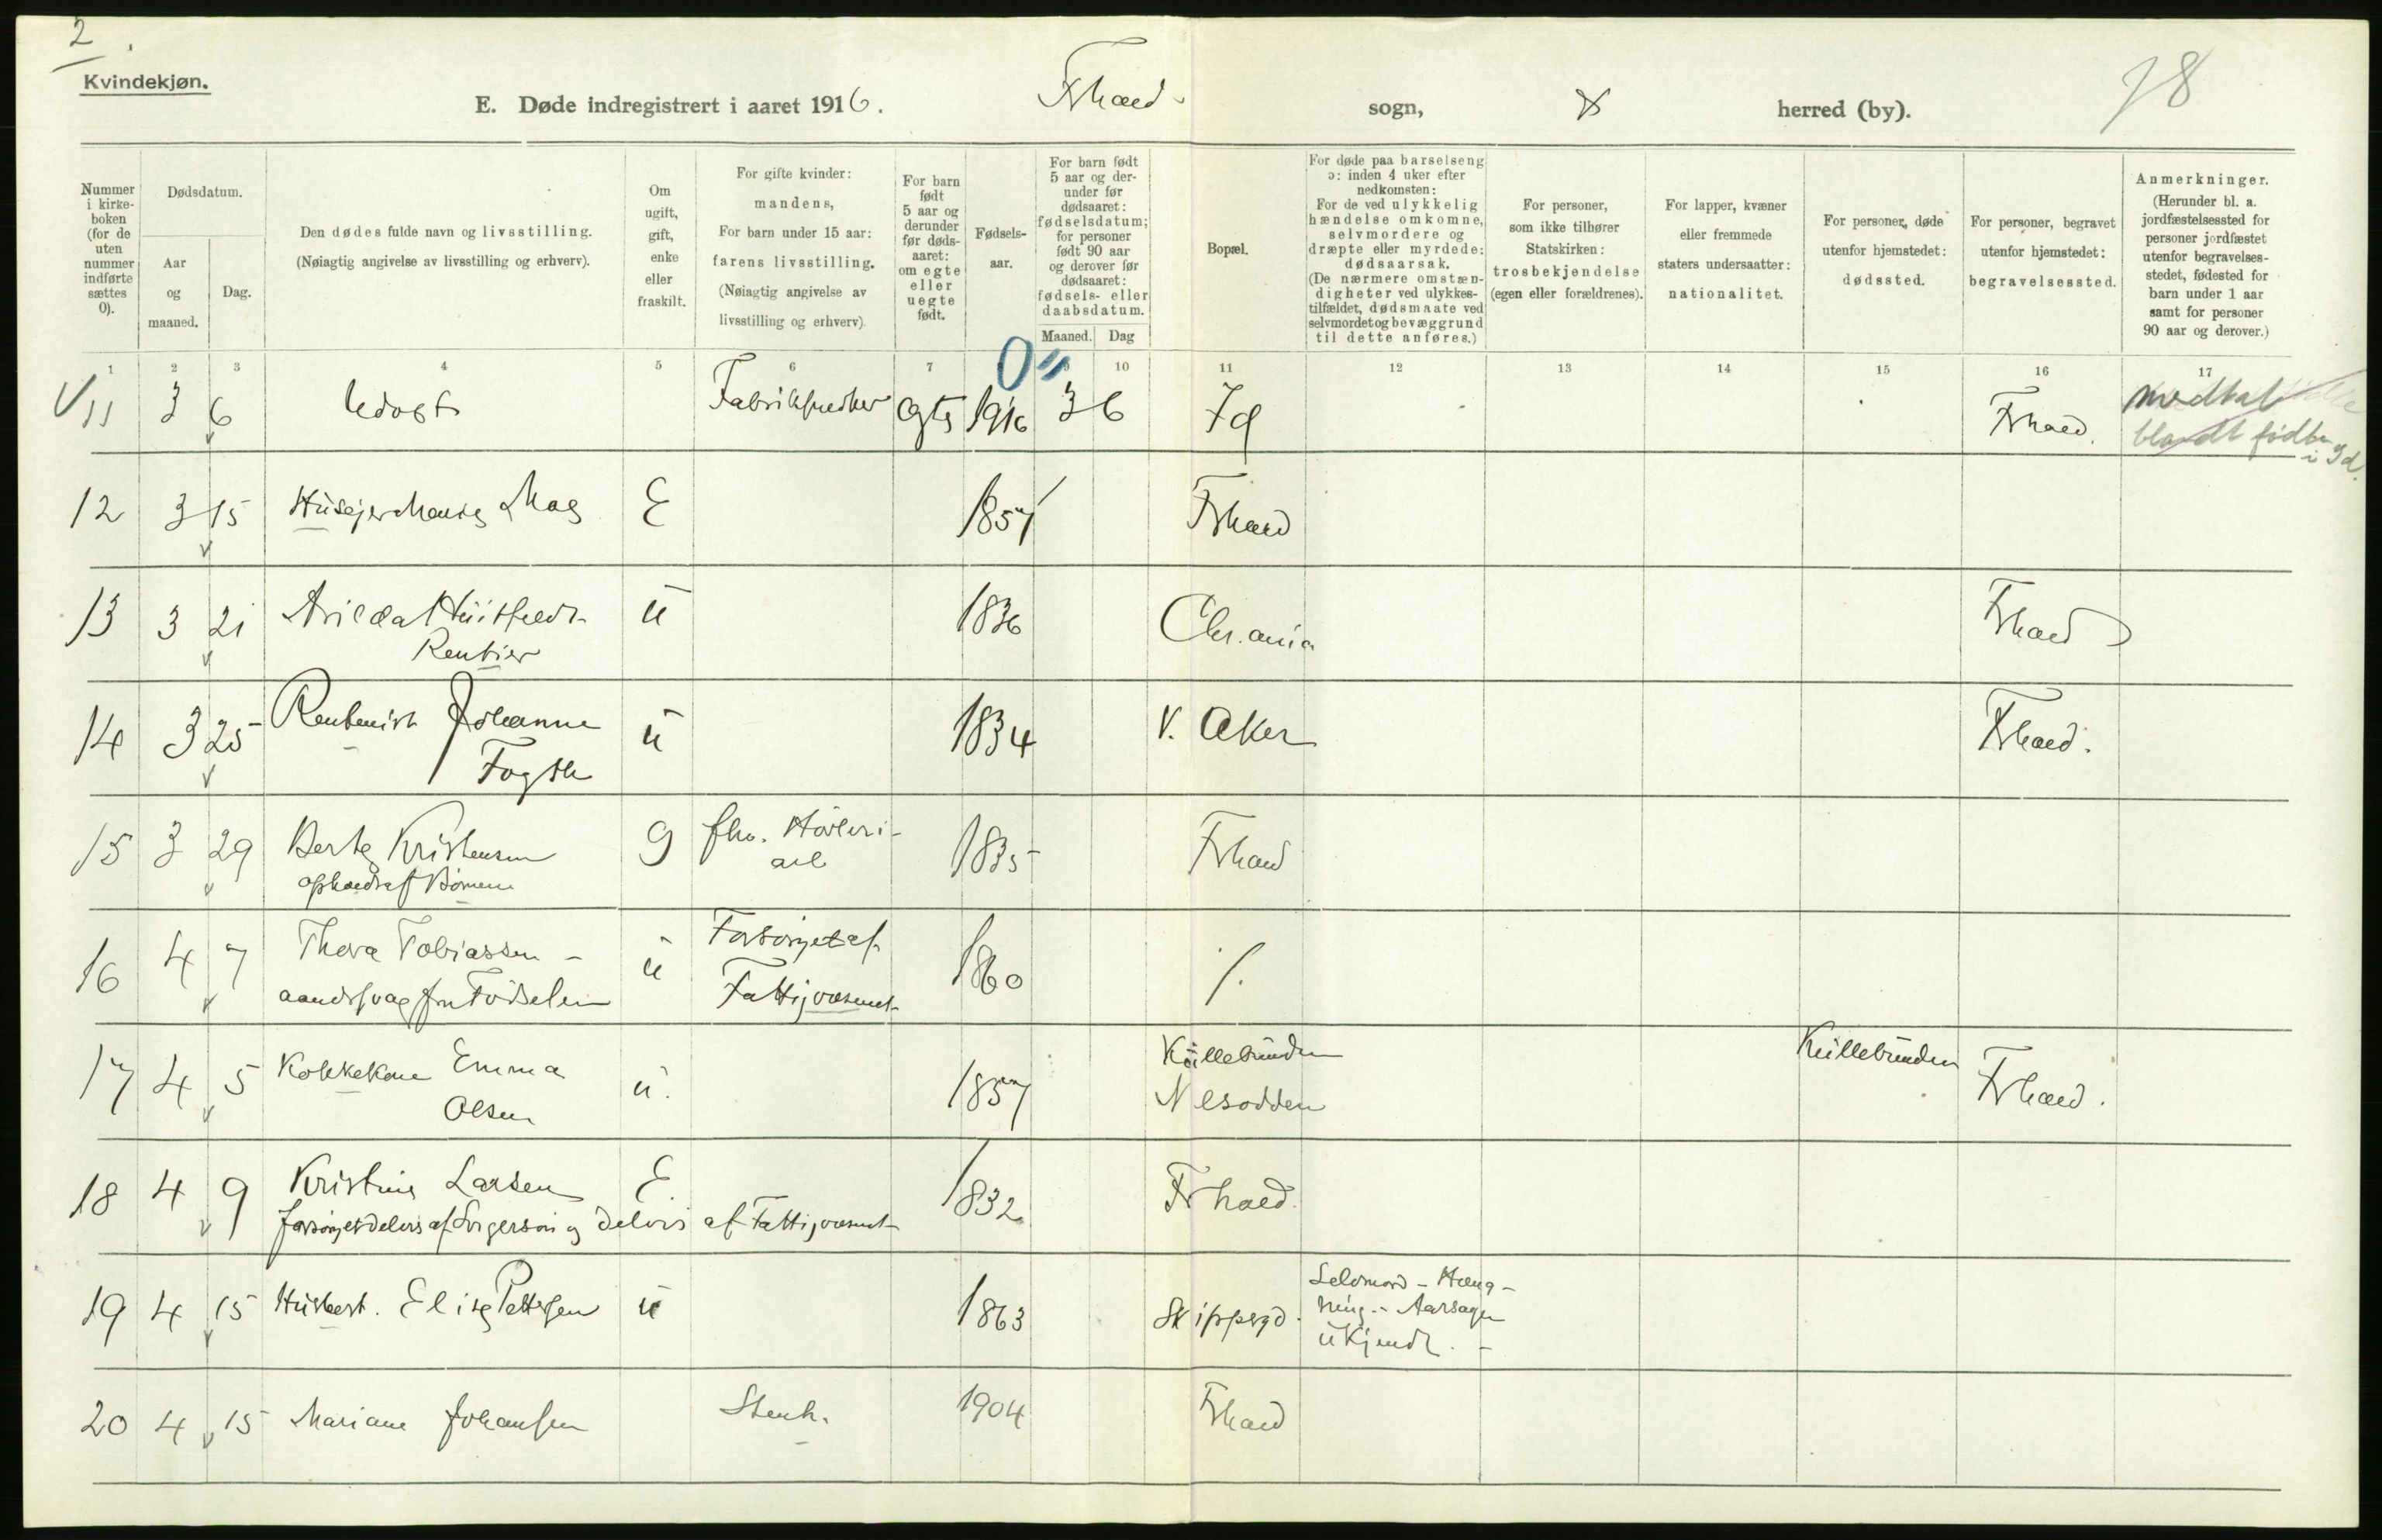 2
Kvindekjøn.
E. Døde indregistrert i aaret 1916. Frhald sogn, herred (by).
78
Nummer i kirkeboken (for de uten nummer indførte sættes 0).
Dødsdatum.
Aar og maaned.
Dag.
Den dødes fulde navn og livsstilling.
(Nøiagtig angivelse av livsstilling og erhverv).
Om ugift, gift, enke eller fraskilt.
For gifte kvinder: mandens,
For barn under 15 aar: farens livsstilling.
(Nøiagtig angivelse av livsstilling og erhverv).
For barn født 5 aar og derunder før dødsaaret: om egte eller uegte født.
Fødselsaar.
For barn født 5 aar og derunder før dødsaaret: fødselsdatum; for personer født 90 aar og derover før dødsaaret: fødsels- eller daabsdatum.
Maaned. Dag
Bopæl.
For døde paa barselseng ɔ: inden 4 uker efter nedkomsten:
For de ved ulykkelig hændelse omkomne, selvmordere og dræpte eller myrdede: dødsaarsak.
(De nærmere omstændigheter ved ulykkestilfældet, dødsmaate ved selvmordet og bevæggrund til dette anføres.)
For personer, som ikke tilhører Statskirken: trosbekjendelse (egen eller forældrenes).
For lapper, kvæner eller fremmede staters undersaatter: nationalitet.
For personer, døde utenfor hjemstedet: dødssted.
For personer, begravet utenfor hjemstedet: begravelsessted.
Anmerkninger.
(Herunder bl. a. jordfæstelsessted for personer jordfæstet utenfor begravelsesstedet, fødested for barn under 1 aar samt for personer 90 aar og derover.)
1 2 3 4 5 6 7 9 10 11 12 13 14 15 16 17
11 3 6 Udøbt egte 1916 3 6 Id Frhald
blandt fødte i Id.
12 3 15 E 1857 Frhald
13 3 21 Huitfeldt u 1836 Chr.ania Frhald
Rentier
14 3 25 Johanne u 1834 V. Aker Frhald.
15 3 29 Berte Kristensen g fhv. Høvleri- 1835 Frhald
arb
16 4 7 Thora Tobiassen - u Forsörjet af 1860 /.
aandssvag fra Fødselen Fattigvæsenet
17 4 5 Kokkekone Emma u. 1857 Nesodden Frhald.
Olsen
18 4 9 Kristine Larsen E. 1832 Frhald.
forsörjet delvis af og delvis af Fattigvæsenet
19 4 15 Husbest. Elise Pettersen u 1863 Skippergd. Selvmord - Hæng-
ning. - Aarsagen
ukjendt. -
20 4 15 Mariane Johansen Stenh. 1904 Frhald